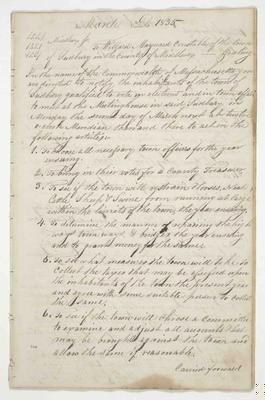 March 2d 1835
Middlesex ss
To William Maynard Constable of the town
of Sudbury in the County of Middlesex Greeting
In the name of the Commonwealth of Massachusetts you
are required to notify the inhabitants of the town of
Sudbury qualified to vote in elections and in town affairs
to meet at the Meetinghouse in said Sudbury on
Monday the second day of March next at twelve
o clock Meridian then and there to act on the
following articles
1. To choose all necessary town officers for the year
ensuing.
2. To bring in their votes for a County Treasurer
3. To see if the town will restrain Horses, Neat
Cattle, Sheep & Swine from running at large
within the limits of the town the year ensuing
4. To determine the manner of repairing the high
ways town ways & bridges the year ensuing
and to grant money for the same.
5. To see what measures the town will take to
collect the taxes that may be assessed upon
the inhabitants of the town the present year
and agree with some suitable person to collect
the same.
6. To see if the town will choose a Committee
to examine and adjust all accounts that
may be brought against the town and
allow the same if reasonable.
Carried forward